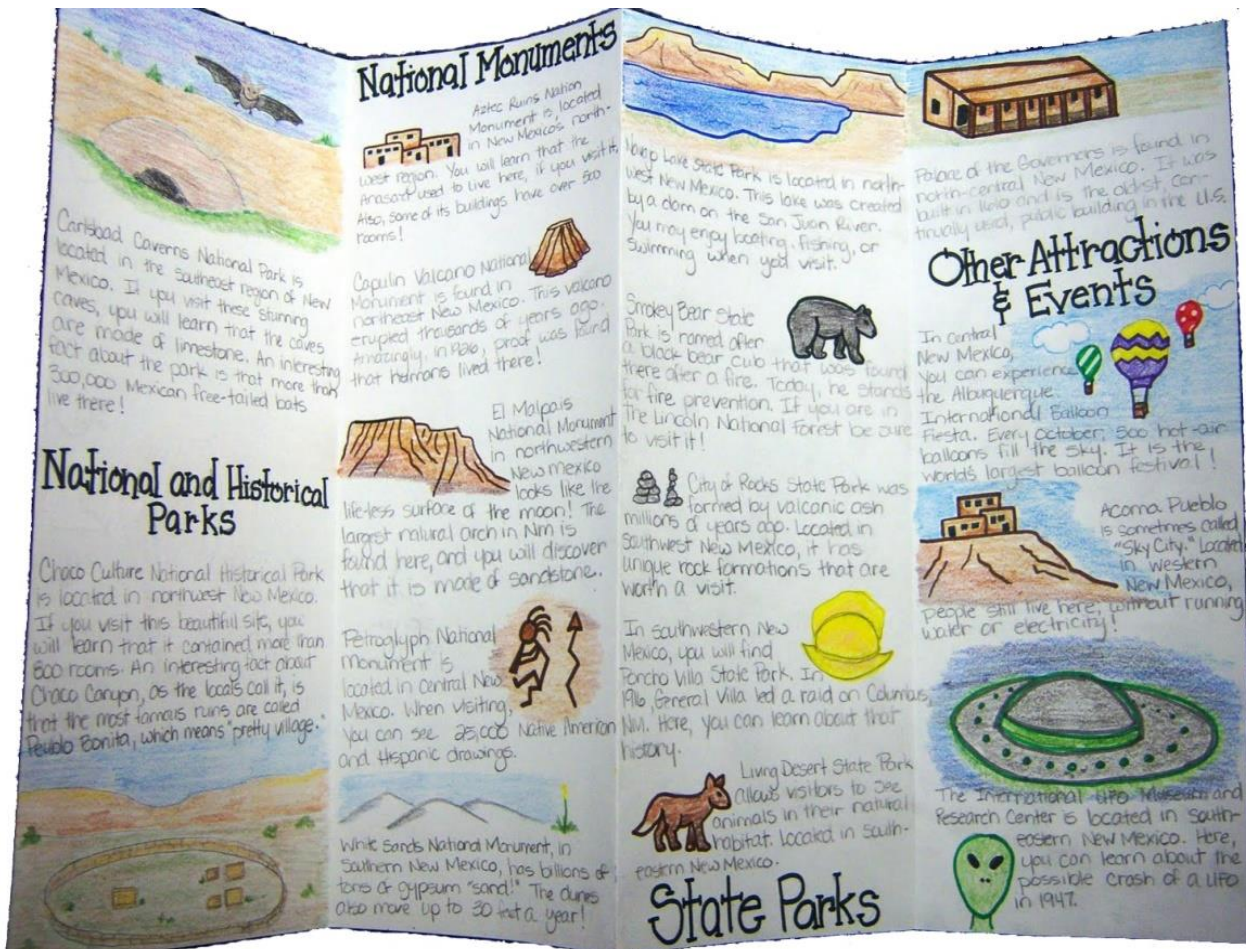 Carlsbad Caverns National Park is
located in the southeast region of New
Mexico. If you visit these stunning
caves, you will learn that the caves
are made of limestone. An interesting
fact about the park is that more than
300,000 Mexican free-tailed bats
live there!
National and Historical
Parks
Chaco Culture National Historical Park
is located in northwest New Mexico.
If you visit this beautiful site, you
will learn that it contained more than
600 rooms. An interesting fact about
Chaco Canyon, as the locals call it, is
that the most famous ruins are called
Peublo Bonita, which means "pretty village."
National Monuments
Aztec Ruins Nation
Monument is, located
in New Mexico's north-
west region. You will learn that the
Anasazi used to live here, if you visit it.
Also, some of its buildings have over 500
rooms!
Capulin Valcano National
Monument is found in
northeast New Mexico. This valcano
erupted thousands of years ago.
Amazingly, in 1926, proof was found
that humans lived there!
El Malpais
National Monument
in northwestern
New Mexico
looks like the
life-less surface of the moon! The
largest natural arch in NM is
found here, and you will discover
that it is made of sandstone.
Petroglyph National
monument is
located in central New
Mexico. When visiting,
you can see 25,000 Native American
and Hispanic drawings.
White Sands National Monument, in
Southern New Mexico, has billions of
tons of gypsum "sand!" The dunes
also move up to 30 feet a year!
Navajo Lake State Park is located in north-
west New Mexico. This lake was created
by a dam on the San Juan River.
You may enjoy boating, fishing, or
swimming when you visit.
Smokey Bear State
Park is named after
a black bear cub that was found
there after a fire. Today, he stands
for fire prevention. If you are in
the Lincoln National Forest be sure
to visit it!
City of Rocks State Park was
formed by valcanic ash
millions of years ago. Located in
southwest New Mexico, it has
unique rock formations that are
worth a visit.
In southwestern New
Mexico, you will find
Poncho Villa State Park. In
1916, General Villa led a raid on Columbus,
NM. Here, you can learn about that
history.
Living Desert State Park
allows visitors to see
animals in their natural
habitat. Located in south-
eastern New Mexico.
State Parks
Palace of the Governors is found in
north-central New Mexico. It was
built in 1610 and is the oldist, con-
tinually used, public building in the U.S.
Other Attractions
& Events
In central
New Mexico,
you can experience
the Albuquerque
International Balloon
Fiesta. Every October, 500 hot-air
balloons fill the sky. It is the
world's largest balloon festival!
Acoma Pueblo
is sometimes called
"Sky City." Located
in western
New Mexico,
people still live here, without running
water or electricity!
The International UFO Museum and
Research Center is located in south-
eastern New Mexico. Here,
you can learn about the
possible crash of a UFO
in 1947.